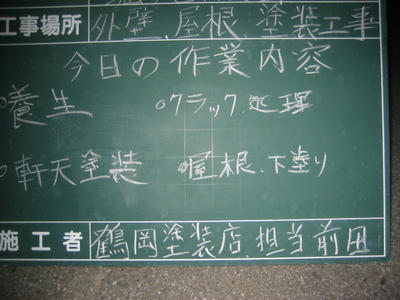 工事場所 外壁、屋根、塗装工事
今日の作業内容
○養生 ○クラック、処理
○軒天塗装 ○屋根、下塗り
施工者 鶴岡塗装店、担当前田